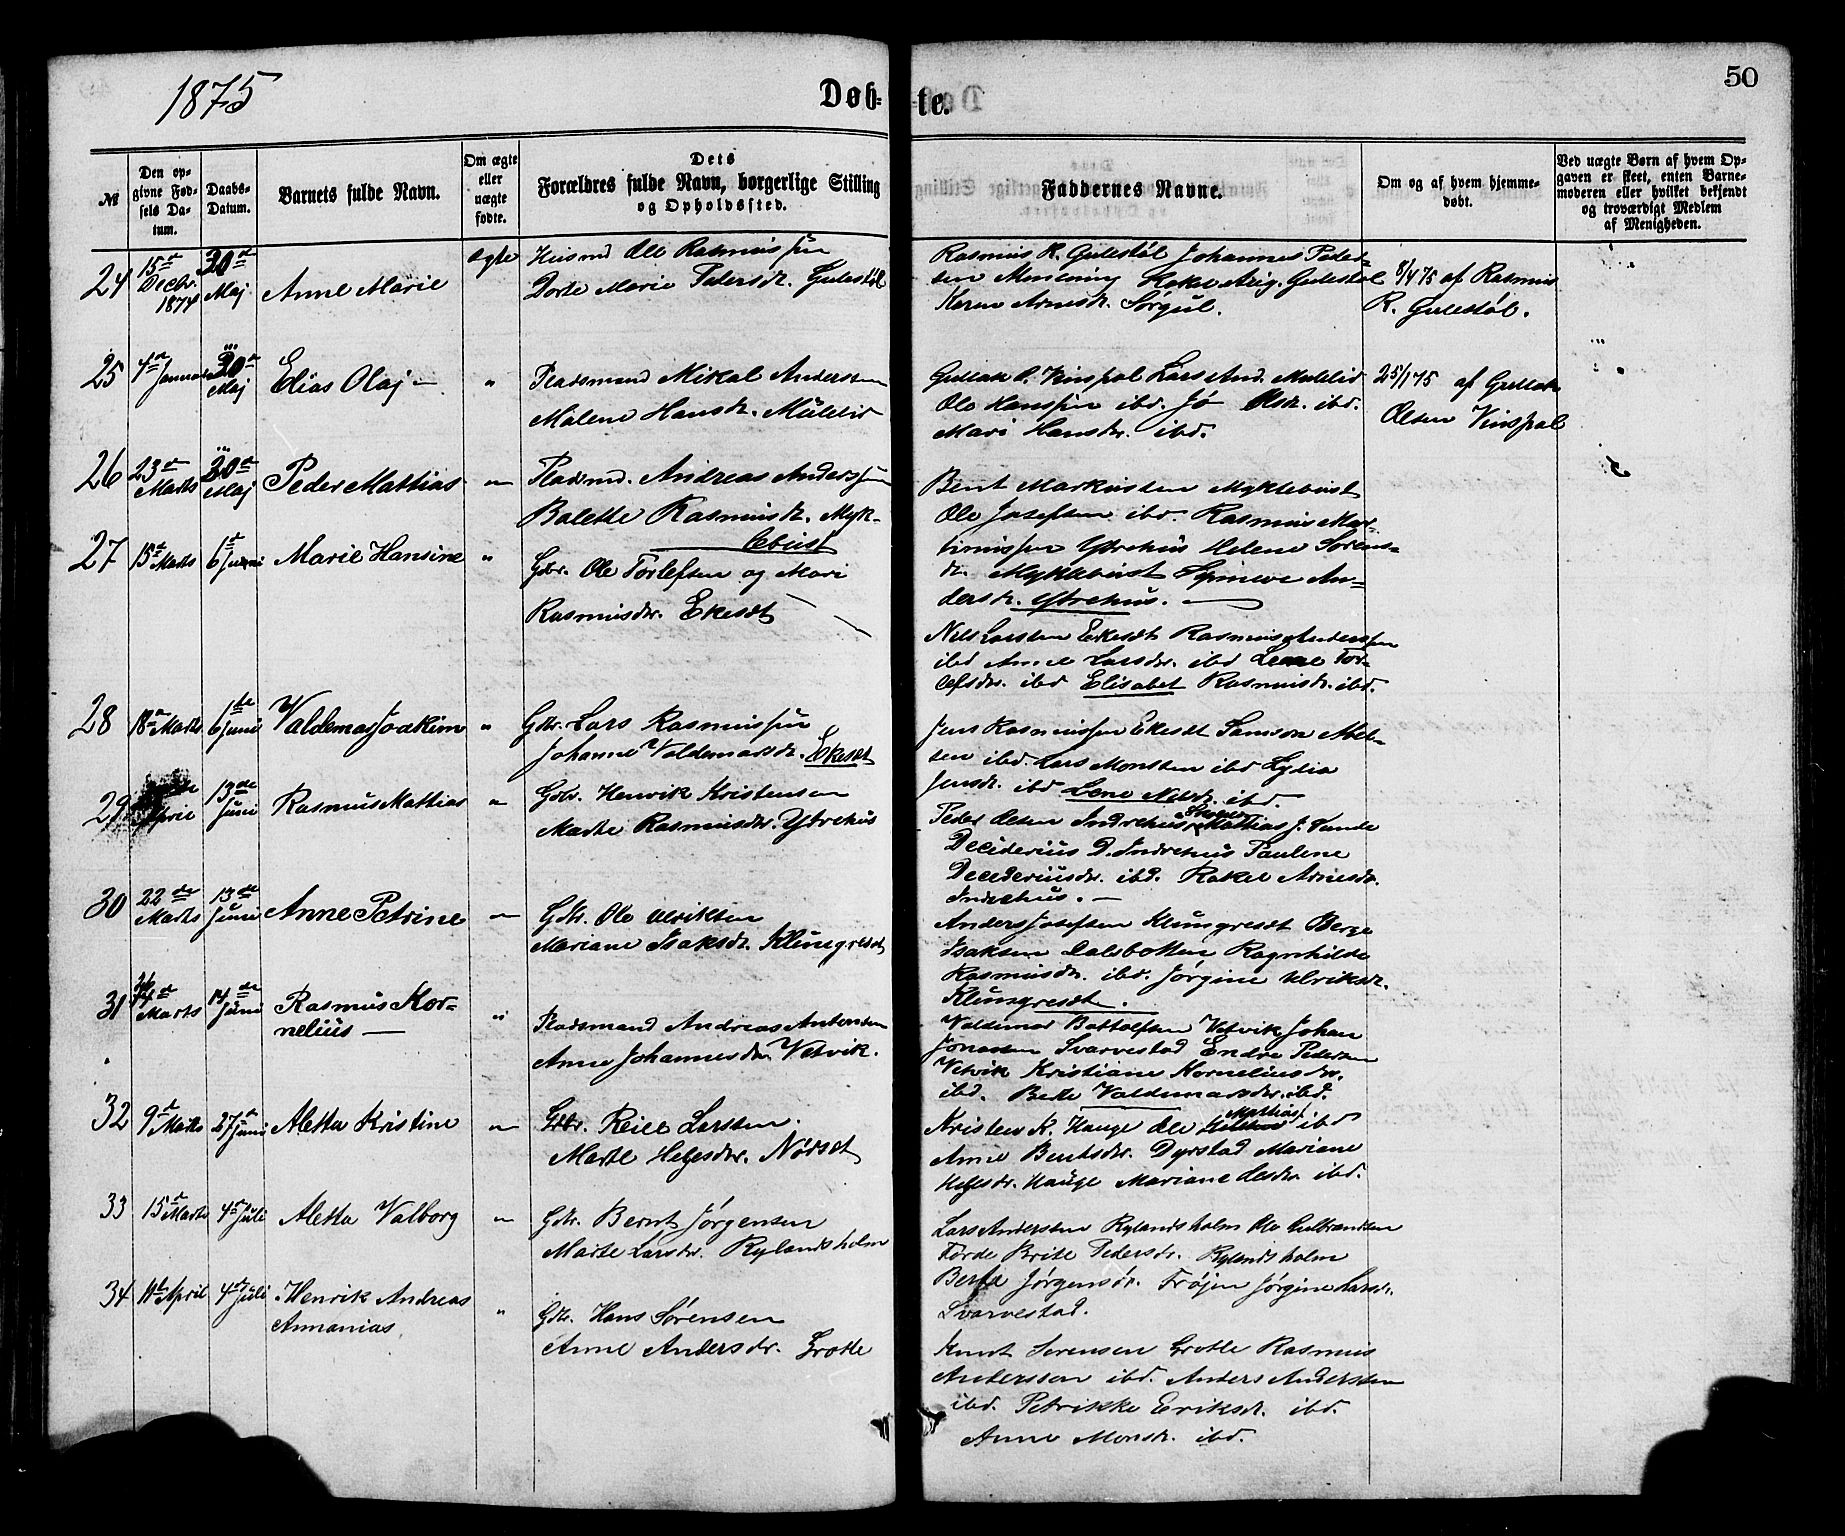 1875
Døb-
te.
50
№
Den op-
givne Fød-
sels Da-
tum.
Daabs-
Datum.
Barnets fulde Navn.
Om ægte
eller
uægte
fødte.
Dets
Forældres fulde Navn, borgerlige Stilling
og Opholdssted.
Faddernes Navne.
Om og af hvem hjemme-
døbt.
Ved uægte Børn af hvem Op-
gaven er skeet, enten Barne-
moderen eller hvilket bekjendt
og troværdigt Medlem
af Menigheden.
24
15de
Decbr.
1874
20de
Maj
Anne Marie
ægte
Husmd Ole Rasmussen
Dorte Marie Petersdr. Gulestøl
Rasmus R. Gulestøl Johannes Peder-
sen Hakel Gulestøl
Karen Arnesdr. Sørgul.
8/4 75 af Rasmus
R. Gulestøl.
25
4de Januar
20de
Maj
Elias Olaj
"
Pladsmand Mikal Andersen
Malene Hansdr. Mulelid
Gullak O. Vinspol Lars And. Mulelid
Ole Hanssen ibd. Jø Olsdr. ibd.
Mari Hansdr. ibd.
25/1 75 af Gullak
Olsen Vinspol
26
23de
Marts
20de
Maj
Peder Mattias
"
Pladsmd. Andreas Anderssen
Bolette Rasmusdr. Myk-
lebust
Bent Markusen Myklebust
Ole Josefsen ibd. Rasmus Mar-
tinussen Ytrehus Helene Sørens-
dr. Myklebust Synneve An-
dersdr. Ytrehus.
27
15de Marts
6te Juni
Marie Hansine
"
Gbr. Ole Torlefsen og Mari
Rasmusdr. Ekesdt
Nils Larsen Ekesdt Rasmus Anderssen
ibd Anne Larsdr. ibd Lene Tor-
lefsdr. ibd Elisabet Rasmusdr. ibd.
28
18de Marts
6te Juni
Valdemar Joakim
"
Gbr. Lars Rasmussen
Johanne Valdemarsdr. Ekesdt
Jens Rasmussen Ekesdt Samson Abel-
sen ibd. Lars Monsen ibd Lydia
Jensdr. ibd Lene Nilsdr. ibd.
29
April
13de
Juni
Rasmus Mattias
"
Gbr. Henrik Kristensen
Marte Rasmusdr. Ytrehus
Peder Olsen Indrehus Mattias J. Sande
Deciderius D. Indrehus Pauline
Decideriusdr. ibd. Rakel Arnesdr.
Indrehus.
30
22de
Marts
13de
Juni
Anne Petrine
"
Gbr. Ole Ulriksen
Mariane Isaksdr. Klungresdt
Anders Josefsen Klungresdt Berge
Isaksen Dalsbotten Ragnhilde
Rasmusdr. ibd. Jørgine Ulriksdr.
Klungresdt.
31
Marts
14de
Juni
Rasmus Kor-
nelius
"
Pladsmand Andreas Antonsen
Anne Johannesdr. Vetvik.
Valdemar Bottolfsen Vetvik Johan
Jonassen Svarvestad Endre Pedersen
Vetvik Kristiane Korneliusdr.
ibd. Berte Valdemarsdr. ibd.
32
9de Marts
27 Juni
Aletta Kristine
"
Gbr. Reier Larsen.
Marte Helgesdr. Nørset
Kristen K. Hauge Ole Mattias ibd
Anne Bentsdr. Dyrstad Mariane
Helgesdr. Hauge Mariane Olesdr. ibd.
33
15de Marts
4de Juli
Aletta Valborg
"
Gbr. Bernt Jørgensen
Marte Larsdr. Rylandsholm
Lars Andersen Rylandsholm Ole Gulbrandsen
Førde Brite Pedersdr. Rylandsholm
Berta Jørgensdr. Frøjen Jørgine Larsdr.
Svarvestad.
34
11te April
4de Juli
Henrik Andreas
Annanias.
"
Gbr. Hans Sørensen
Anne Andersdr. Grotle
Knut Sørensen Grotle Rasmus
Andersson ibd. Anders Andersen
ibd. Petrikke Eriksdr. ibd.
Anne Monsdr. ibd.